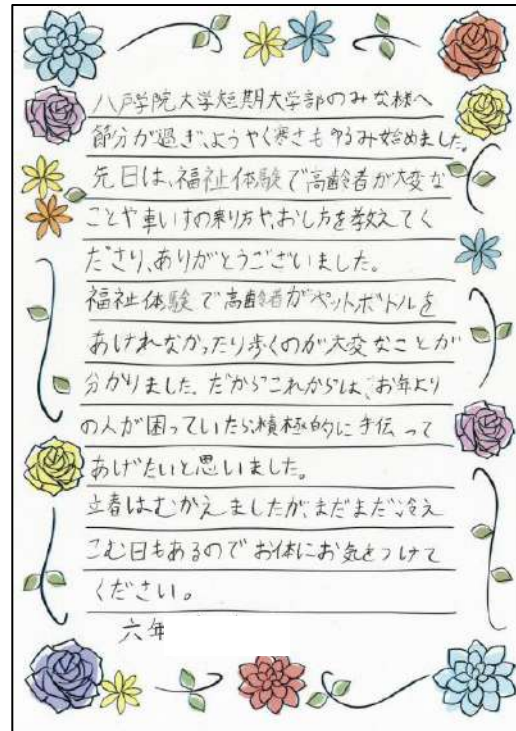 八戸学院大学短期大学部のみな様へ
節分が過ぎ、ようやく寒さもゆるみ始めました。
先日は、福祉体験で高齢者が大変な
ことや車いすの乗り方や、おし方を教えてく
ださり、ありがとうございました。
福祉体験で高齢者がペットボトルを
あけれなかったり歩くのが大変なことが
分かりました。だからこれからは、お年より
の人が困っていたら、積極的に手伝って
あげたいと思いました。
立春はむかえましたが、まだまだ冷え
こむ日もあるのでお体にお気をつけて
ください。
六年